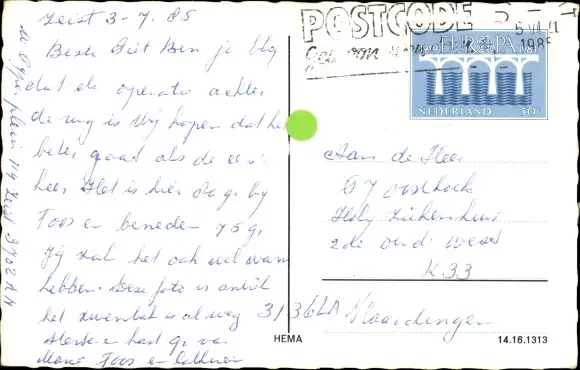 Zeist 3-7-85
Beste Piet Ben je bly
dat de operatie achter
de rug is Wij hopen dat het
beter gaat als de eerste
keer Het is hier 80 gr by
Toos en beneden 75 gr
Jij zal het ook wel warm
hebben. Deze foto is antiek
het zwembat is al weg
Sterkte en hart gr van
Toos en
119 Zeist 3702 AN
POSTCODE
1985
EUROPA
1984
NEDERLAND 50
Aan de Heer
Oosthoek
Holy Ziekenhuis
2de oud west
K 33
3136LA Vlaardingen
HEMA
14.16.1313